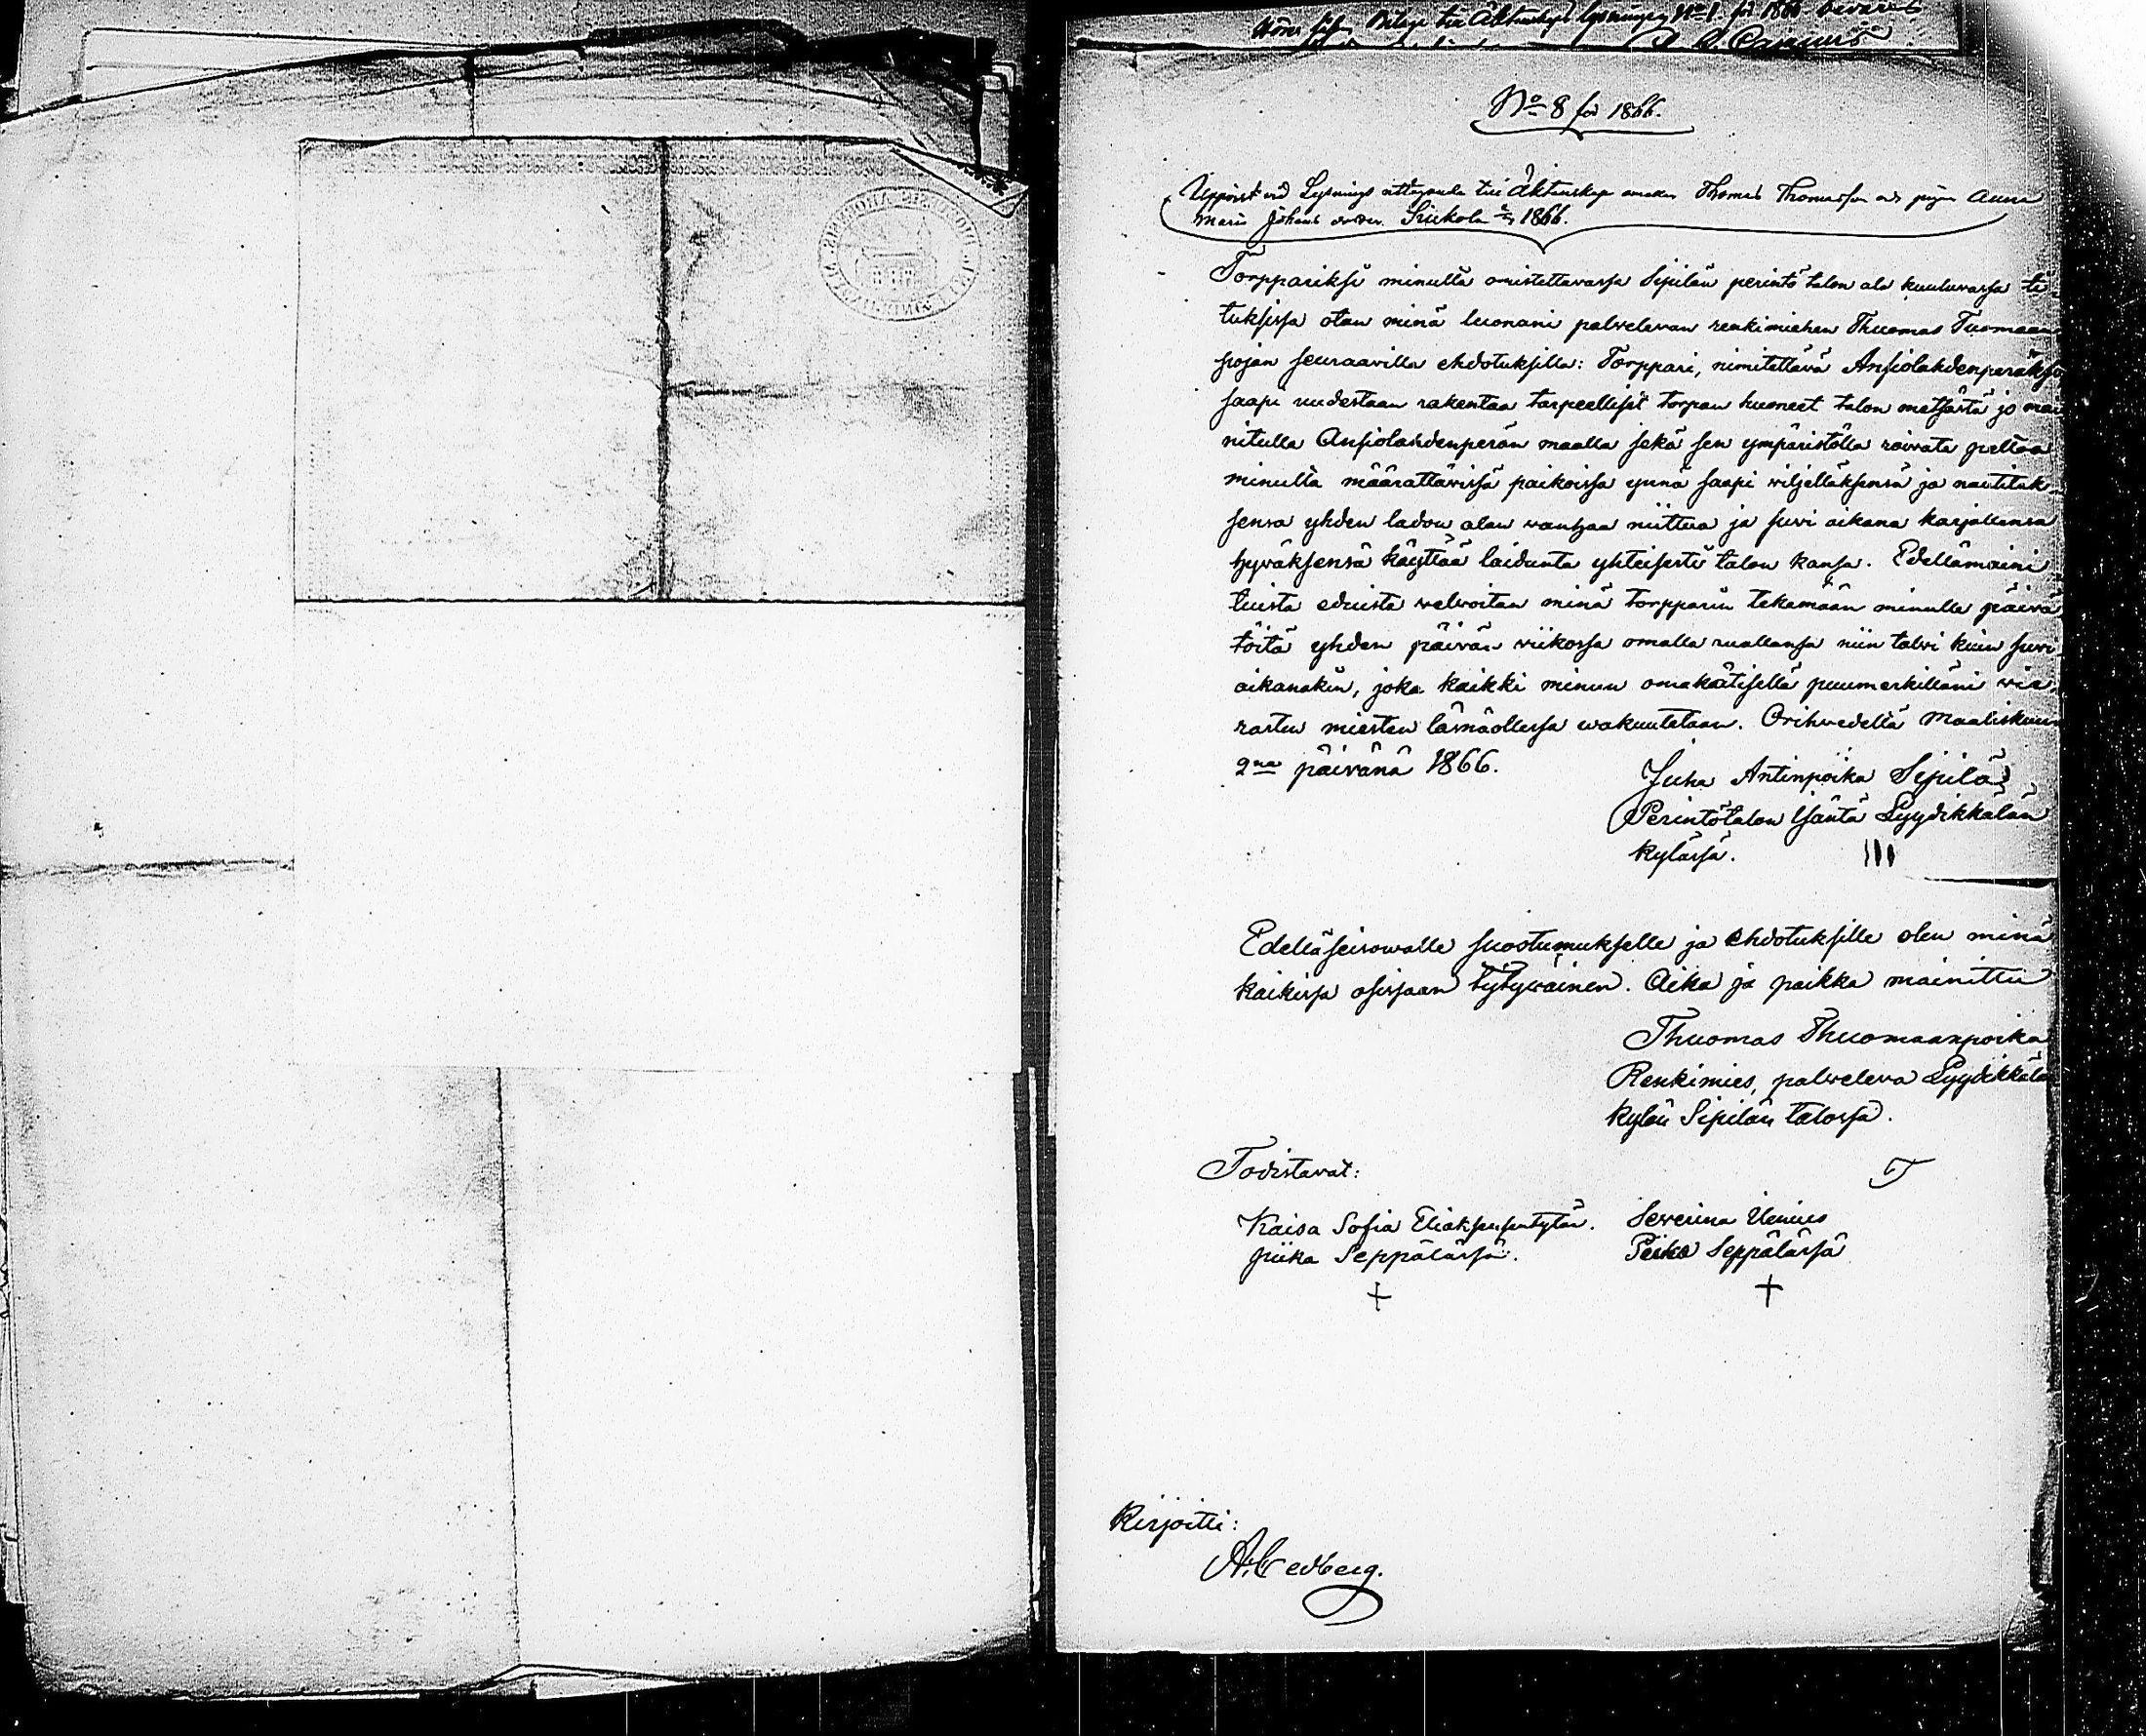 Bilaga till Äktenskaps lysningen No 1 för 1866 bevaras
No 8 för 1866.
Uppvist vid Lysnings uttagande till Äktenskap emellan Thomas Thomasson och pigan Anna
Maria Johans dotter Siukola 1866.
Torppariksi minulta omistettavassa Sipilän perintö talon ala kuuluvassa ti-
luksissa otan minä luonani palvelevan renkimiehen Thuomas Tuomaan
pojan seuraavilla ehdotuksilla: Torppari, nimitettävä Ansiolahdenperäksi,
saapi uudestaan rakentaa tarpeelliset torpan huoneet talon metsästä jo mai
nitulla Ansiolahdenperän maalla sekä sen ympäristöllä raivata peltoa
minulta määrättävissä paikoissa ynnä saapi viljelläksensä ja nautitak-
sensa yhden ladon alan vanhaa niittua ja suvi aikana karjallensa
hyväksensä käyttää laidunta yhteisesti talon kansa. Edellämaini
tuista eduista velvoitan minä torpparin tekemään minulle päivä
töitä yhden päivän viikossa omalla ruallansa niin talvi kuin suvi
aikanakin, joka kaikki minun omakätisellä puumerkilläni vie-
rasten miesten läsnäollessa vakuutetaan. Orihvedellä Maaliskuun
2na päivänä 1866.
Juha Antinpoika Sipilä
Perintötalon Isäntä Lyydikkälän
kylässä.
III
Edelläseisovalle suostumukselle ja ehdotuksille olen minä
kaikissa osissaan tytyväinen. Aika ja paikka mainittu
Thuomas Thuomaanpoika
Renkimies, palveleva Lyydikkälän
kylän Sipilän talossa.
T
Todistavat:
Kaisa Sofia Eliaksentytär. Severina
piika Seppälässä. Piika Seppälässä
+ +
Kirjoitti:
A. Cedberg.